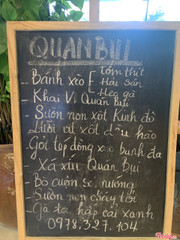 QUÁN BỤI
Tôm thịt
- Bánh xèo [ Hải Sản
Heo gà
- Khai Vị Quán Bụi
- Sườn non xốt Kinh đô
- Lưỡi vịt xốt dầu hào
- Gỏi
Xá xíu Quán Bụi
- Bò cuộn sả nướng
- Sườn non cháy tỏi
- Gà ta hấp cải xanh
0978.327.104